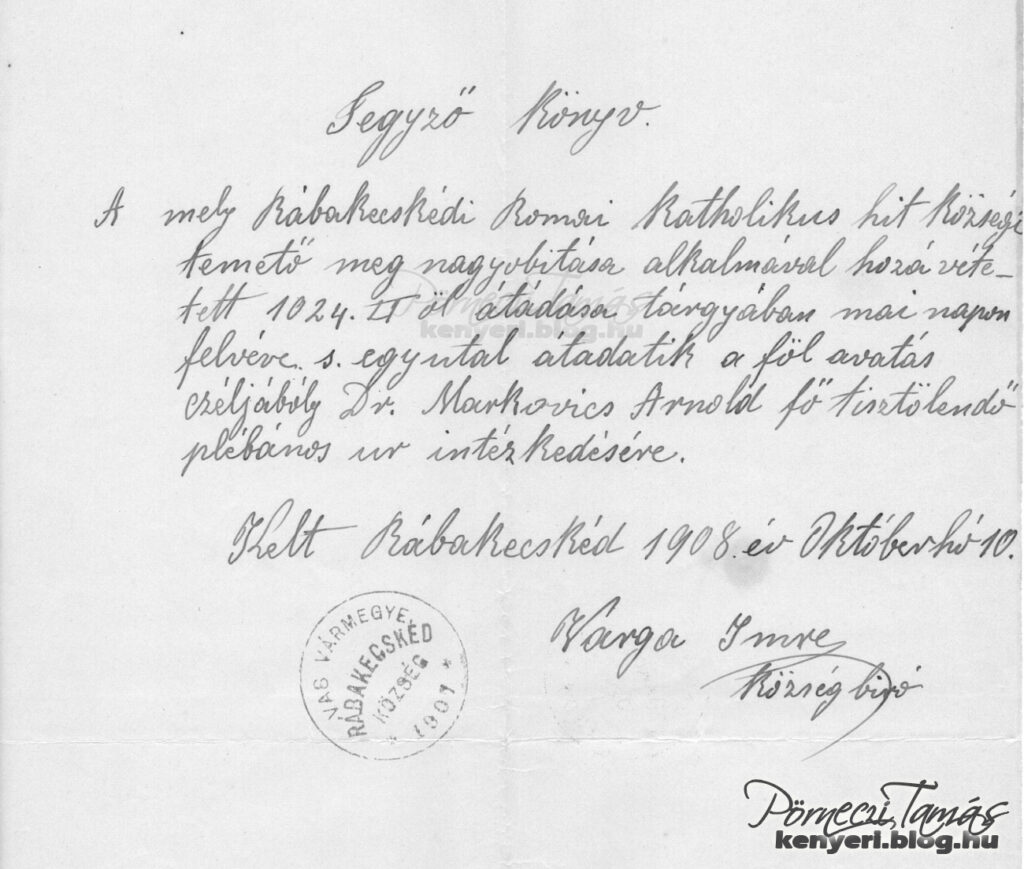 Jegyző Könyv.
A mely Rábakecskédi Romai Katholikus hit Község
temető meg nagyobitása alkalmával hozá véte-
tett 1024. □ öl átádása tárgyában mai napon
felvéve. s. egyutal átadatik a föl avatás
czéljábóly Dr. Markovics Arnold fő tisztölendő
plébános ur intézkedésére.
Kelt Rábakecskéd 1908. év Október hó 10.
Várga Imre
Község biró
VAS VÁRMEGYE
RÁBAKECSKÉD
KÖZSÉG
* 1907 *
Pörneczi Tamás
kenyeri.blog.hu
Pörneczi Tamás
kenyeri.blog.hu